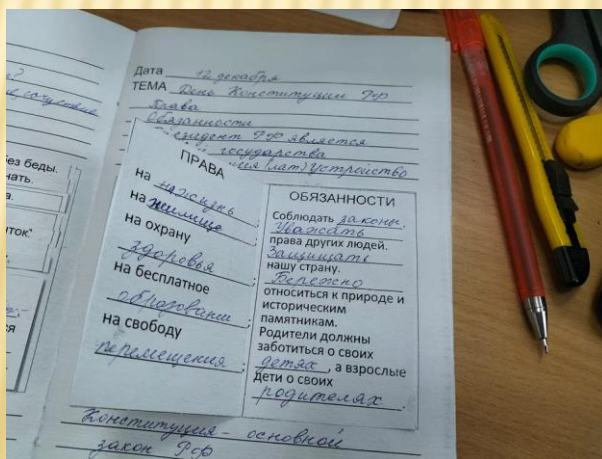 без беды.
нать.
а.
иток"
ся
Дата 12 декабря
ТЕМА День Конституции РФ
Права
Обязанности
РФ является
государства
(лат) устройство
ПРАВА
на на жизнь ;
на жилище ;
на охрану
здоровья ;
на бесплатное
образование ;
на свободу
перемещения ;
ОБЯЗАННОСТИ
Соблюдать законы.
Уважать
права других людей.
Защищать
нашу страну.
Бережно
относиться к природе и
историческим
памятникам.
Родители должны
заботиться о своих
детях , а взрослые
дети о своих
родителях .
Конституция – основной
закон РФ